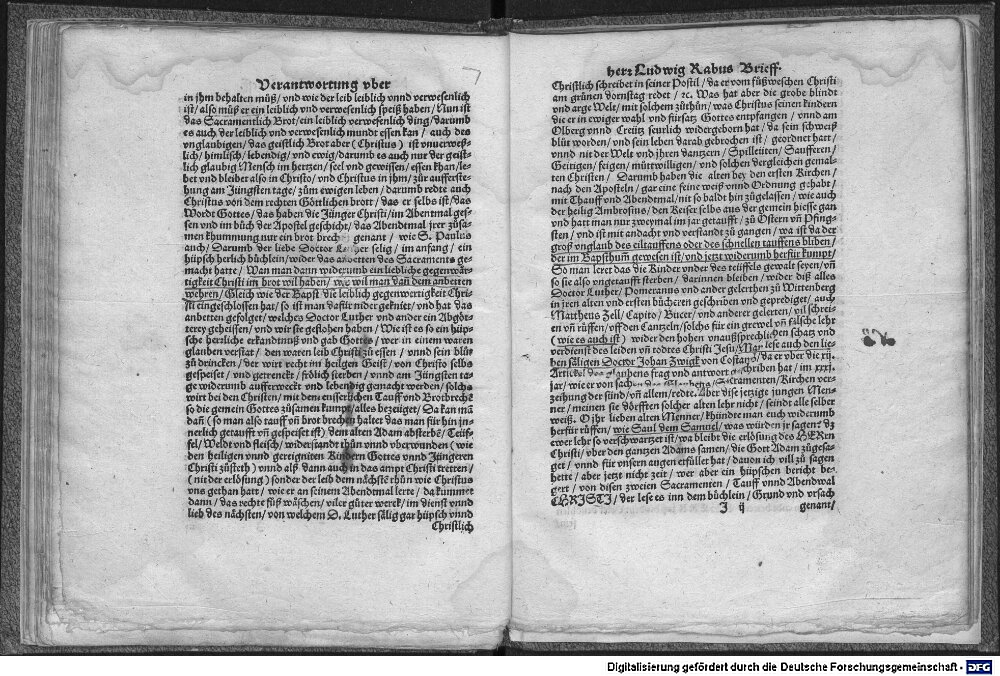 Verantwortung vber
in jhm behalten müß/ vnd wie der leib leiblich vnnd verwesenlich
ist/ also müß er ein leiblich vnd verwesenlich speiß haben/ Nun ist
das Sacramentlich Brot/ ein leiblich verwesenlich ding/ darumb
es auch der leiblich vnd verwesenlich mundt essen kan/ auch des
vnglaubigen/ das geistlich Brot aber (Christus) ist vnuerweß-
lich/ himlisch/ lebendig/ vnd ewig/ darumb es auch nur der geist-
lich glaubig Mensch im hertzen/ seel vnd gewissen/ essen khan/ le-
bet vnd bleibet also in Christo/ vnd Christus in jhm/ zůr aufferste-
hung am Jüngsten tage/ zům ewigen leben/ darumb redte auch
Christus von dem rechten Göttlichen brott/ das er selbs ist/ das
Wordt Gottes/ das haben die Jünger Christi/ im Abentmal ges-
sen vnd im bůch der Apostel geschicht/ das Abendtmal jrer zůsa-
men khummung nur ein brot brech genant/ wie S. Paulus
auch/ Darumb der liebe Doctor selig/ im anfang/ ein
hüpsch herlich büchlein/ wider das anbetten des Sacraments ge-
macht hatte/ Wan man dann widerumb ein liebliche gegenwår-
tigkeit Christi im brot wil haben/ wie wil man dan dem anbetten
wehren/ Gleich wie der Bapst die leiblich gegenwertigkeit Chri-
sti eingeschlossen hat/ so ist man dafür nider geknüt/ vnd hat das
anbetten gefolget/ welches Doctor Luther vnd ander ein Abgöt-
terey geheissen/ vnd wir sie geflohen haben/ Wie ist es so ein hüp-
sche herliche erkandtnuß vnd gab Gottes/ wer in einem waren
glauben verstat/ den waren leib Christi zů essen/ vnnd sein blůt
zů drincken/ der wirt recht im heilgen Geist/ von Christo selbs
gespeiset/ vnd getrenckt/ frölich sterben/ vnnd am Jüngsten ta-
ge widerumb aufferweckt vnd lebendig gemacht werden/ solchs
wirt bei den Christen/ mit dem eusserlichen Tauff vnd Brotbrechē
so die gemein Gottes zůsamen kumpt/ alles bezeüget/ Da kan mā
dañ (so man also tauff vñ brot brechen haltet das man für hin jn-
nerlich getaufft vñ gespeiset ist) dem alten Adam absterbē/ Teüf-
fel/ Weldt vnd fleisch/ widerstandt thůn vnnd vberwunden (wie
den heiligen vnnd gereigniten Kindern Gottes vnnd Jüngeren
Christi zůsteth) vnnd alß dann auch in das ampt Christi tretten/
(nit der erlösung) sonder der leib dem nächstē thůn wie Christus
vns gethan hatt/ wie er an seinem Abendtmal lerte/ da kummet
dann/ das rechte füß wäschen/ viler gůter werck/ im dienst vnnd
lieb des nächsten/ von welchem D. Luther sälig gar hüpsch vnnd
Christlich
herr Ludwig Rabus Brieff.
Christlich schreibet in seiner Postil/ da er vom füßweschen Christi
am grünen dornstag redet/ ꝛc. Was hat aber die grobe blindt
vnd arge Welt/ mit solchem zůthůn/ was Christus seinen kindern
die er in ewiger wahl vnd fürsatz Gottes entpfangen/ vnnd am
Olberg vnnd Creütz seurlich widergeborn hat/ da sein schweiß
blůt worden/ vnd sein leben darab gebrochen ist/ geordnet hatt/
vnnd nit der Welt vnd jhren dantzern/ Spilleüten/ Saufferen/
Geitzigen/ feigen/ mütwilligen/ vnd solchen dergleichen gemal-
ten Christen/ Darumb haben die alten bey den ersten Kirchen/
nach den Aposteln/ gar eine feine weiß vnnd Ordnung gehabt/
mit Thauff vnd Abendtmal/ nit so baldt hin zůgelassen/ wie auch
der heilig Ambrosius/ den Keiser selbs aus der gemein hiesse gan
vnd hatt man nur zweymal im jar getaufft/ zů Ostern vñ Pfing-
sten/ vnd ist mit andacht vnd verstandt zů gangen/ wa ist da der
groß vnglaub des eiltauffens oder des schnellen tauffens bliben/
der im Bapsthum̃ gewesen ist/ vnd jetzt widerumb herfür kumpt/
So man leret das die Kinder vnder des teüffels gewalt seyen/ vñ
so sie also vngetaufft sterben/ darinnen bleiben/ wider diß alles
Doctor Luther/ Pomeranus vnd ander gelerthen zů Wittenberg
in iren alten vnd ersten bücheren geschriben vnd geprediget/ auch
Mattheus Zell/ Capito/ Bucer/ vnd anderer gelerten/ vil schrei-
en vñ rüffen/ vff den Cantzeln/ solchs für ein grewel vñ falsche lehr
(wie es auch ist) wider den hohen vnaußsprechlichen schatz vnd
verdienst des leiden vñ todtes Christi Jesu/ Man lese auch den lie-
ben säligen Doctor Johan Zwigk von Costantz/ da er vber die xij.
Artickel des glaubens frag vnd antwort geschriben hat/ im xxxj.
jar/ wie er von sachen des Glaubens/ Sacramenten/ Kirchen ver-
zeihung der sünd/ vñ allem/ redte. Aber dise jetzige jungen Men-
ner/ meinen sie dörfften solcher alten lehr nicht/ seindt alle selber
weiß. O jhr lieben alten Menner/ khündte man euch widerumb
herfür rüffen/ wie Saul dem Samuel/ was würden jr sagen? dz
ewer lehr so verschwartzet ist/ wa bleibt die erlösung des HERrn
Christi/ vber den gantzen Adams samen/ die Gott Adam zůgesa-
get/ vnnd für vnsern augen erfüllet hat/ dauon ich vill zů sagen
hette/ aber jetzt nicht zeit/ wer aber ein hüpschen bericht be-
gert/ von disen zweien Sacramenten/ Tauff vnnd Abendmal
CHRISTI/ der lese es inn dem büchlein/ Grund vnd vrsach
J ij genant/
Digitalisierung gefördert durch die Deutsche Forschungsgemeinschaft - DFG